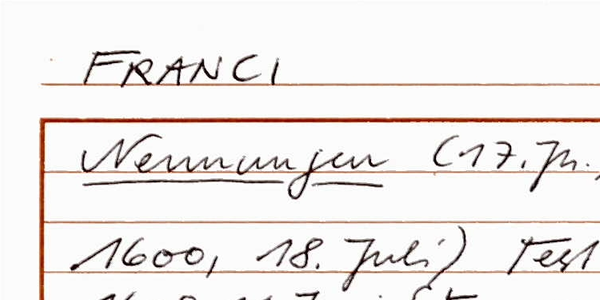 FRANCI
Nennungen (17. Jh.,
1600, 18. Juli) Test